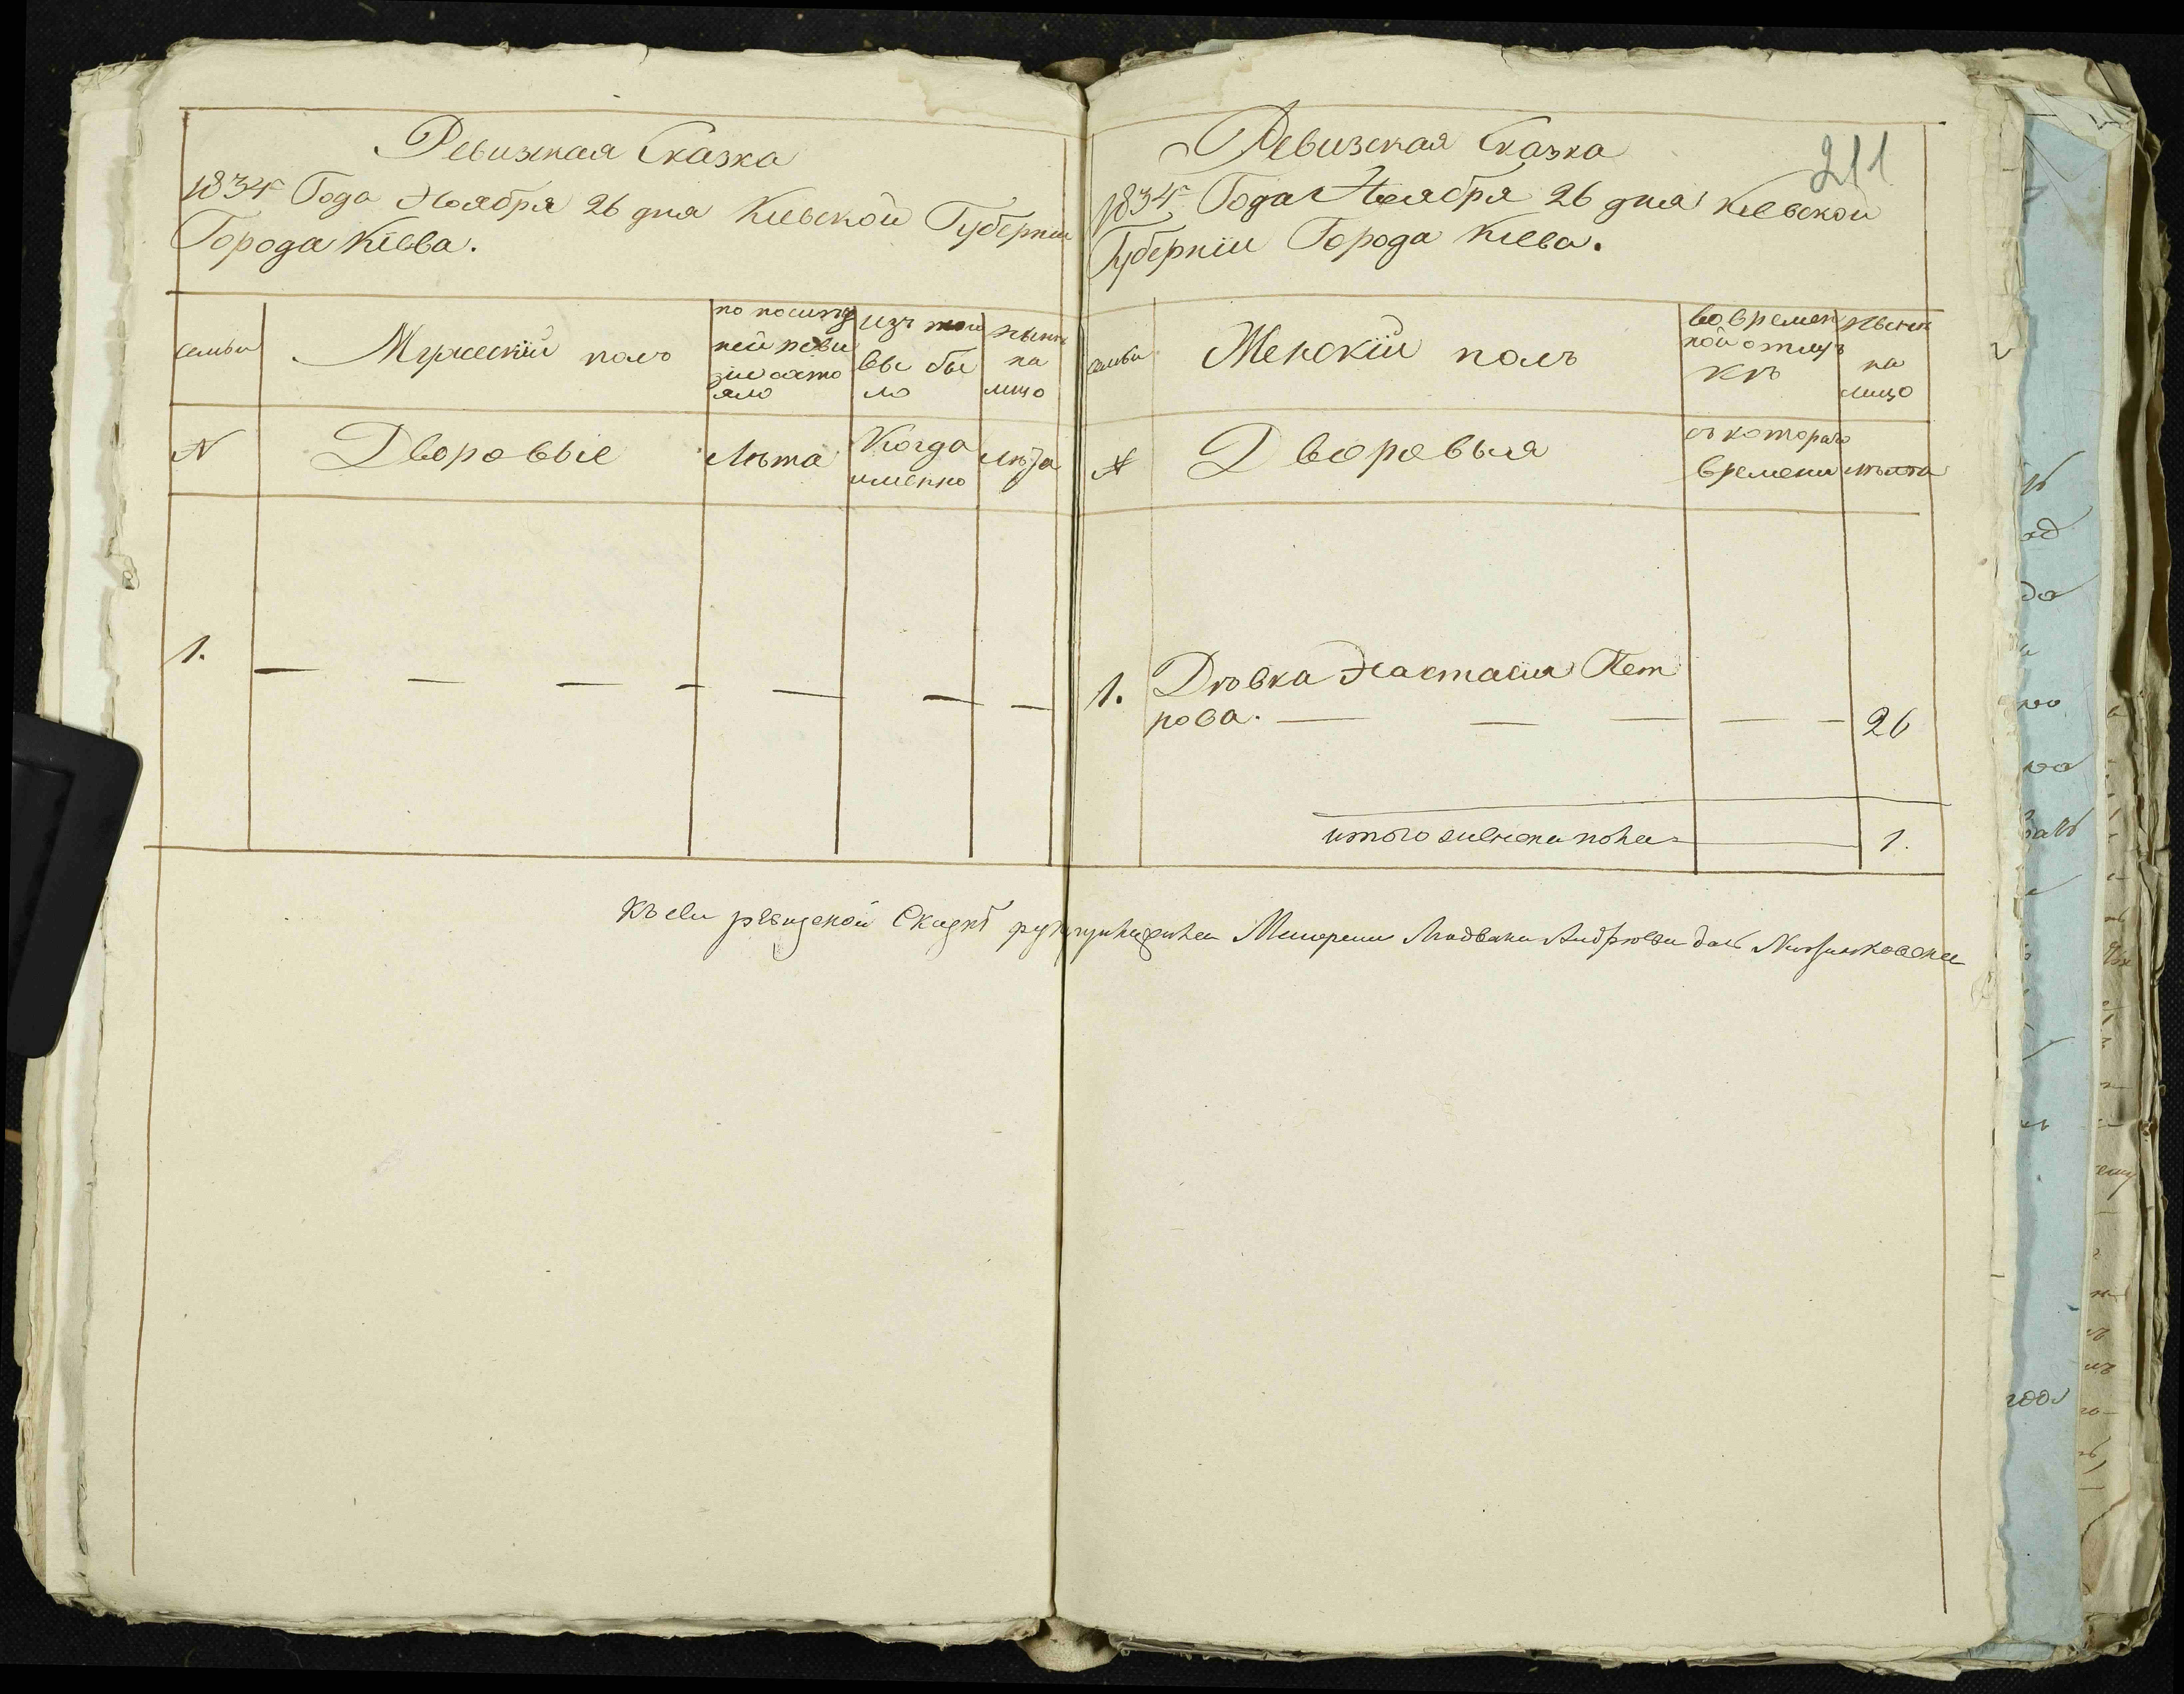 Ревизская Сказка
1834 Года Ноября 26 дня Кіевской Губерніи
Города Кіева.
семьи
Мужескій полъ
по послѣд
ней реви
зіи состо
яло
изъ того
вы бы
ло
нынѣ
на
лицо
N
Дворовые
Лѣта
Когда
именно
лѣта
1.
Ревизская Сказка
211
1834 Года Ноября 26 дня Кіевской
Губерніи Города Кіева.
семьи
Женскій полъ
во времен
ной отлуч
кѣ
нынѣ
на
лицо
N
Дворовыя
съ котораго
времени
лѣта
1.
Дѣвка Настасія Пет
рова.
26
итого
1.
Къ сей ревизской Сказкѣ